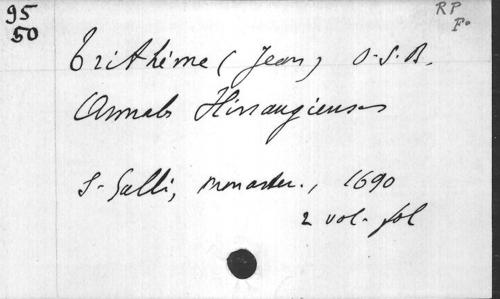 95
50
RP
F°
Trithème (Jean) O.S.B.
Annales Hirsaugienses
S. Galli, monaster., 1690
2 vol. fol